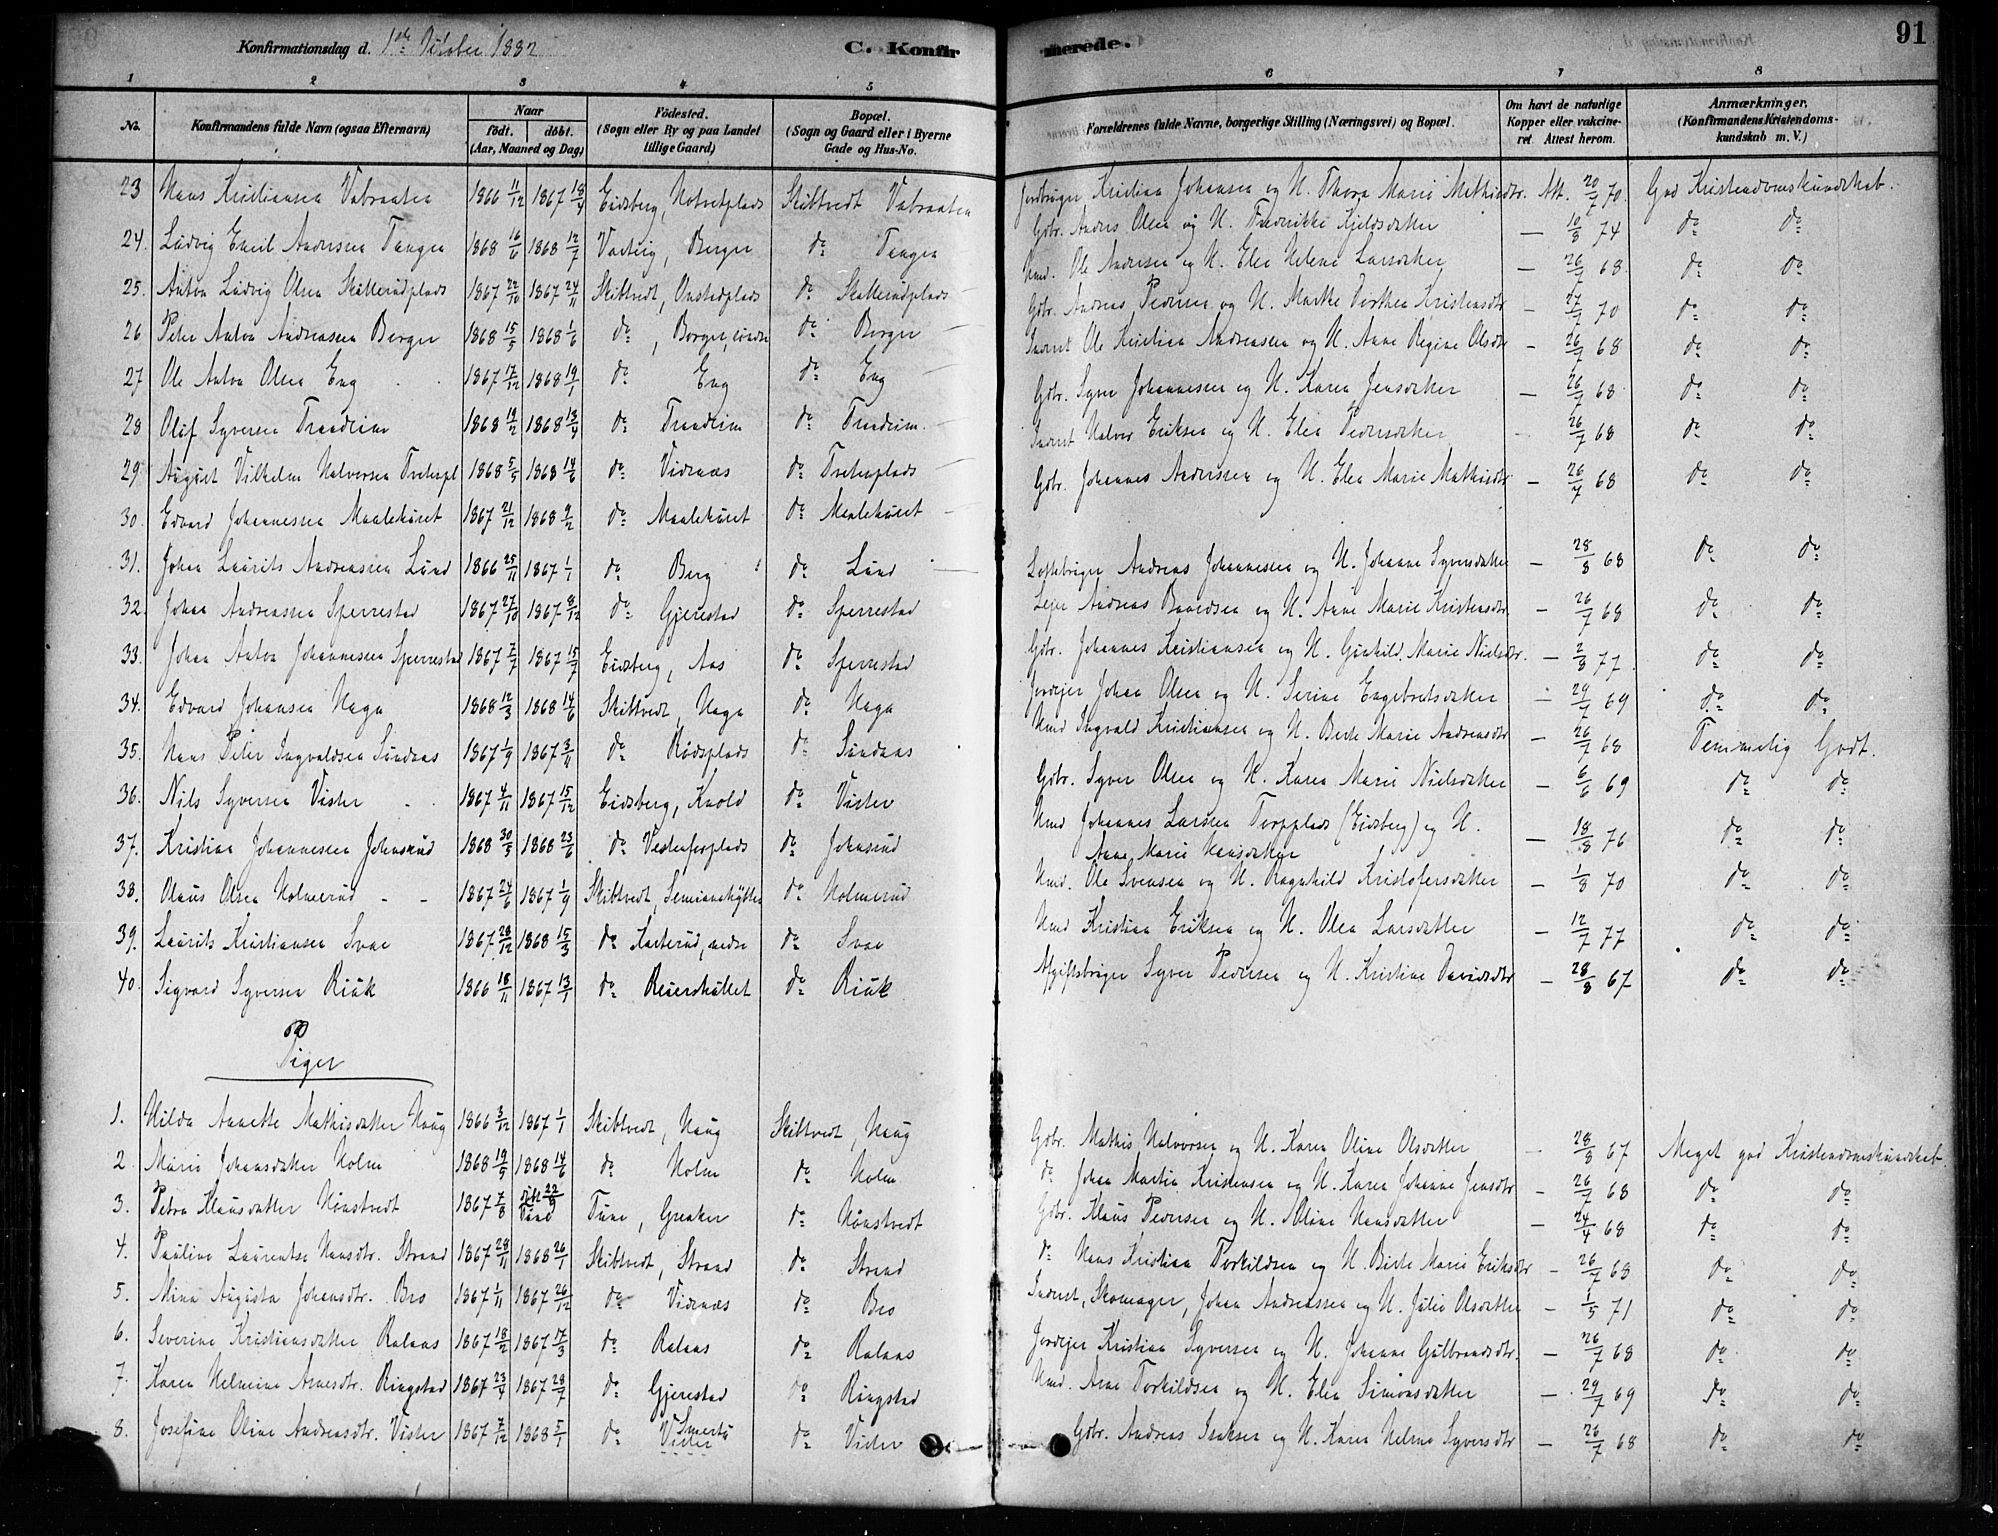 Konfirmationsdag d. 1ste October 1882 C. Konfirmerede. 91
1 2 3 4 5 6 7 8
No. Konfirmandens fulde Navn (ogsaa Efternavn) Naar født. døbt. (Aar, Maaned og Dag) Fødested. (Sogn eller By og paa Landet tillige Gaard) Bopæl. (Sogn og Gaard eller i Byerne Gade og Hus-No. Forældrenes fulde Navne, borgerlige Stilling (Næringsvei) og Bopæl. Om havt de naturlige Kopper eller vakcineret Attest herom. Anmærkninger. (Konfirmandens Kristendomskundskab m. V.)
23 Hans Kristiansen Vabraaten 1866 11/12 1867 18/4 Eidsberg, Skibtvedt Vabraaten Kristian Johansen og H. Thora Marie Mathisdtr. Att. 20/7 70. God Kristendomskundskab.
24. Ludvig Emil Andersen Tangen 1868 16/6 1868 12/7 Varteig, Berger do Tangen Gbr. Anders Olsen og H. Fredrikke Kjeldsdatter — 10/8 74 do do
25. Anton Ludvig Olsen Skallerudplads 1867 22/10 1867 24/11 Skibtvedt, Onstadplads do Skallerudplads Hmd. Ole Andersen og H. Elen Helene Larsdatter — 26/7 68 do do
26 Peter Anton Andreassen Berger 1868 15/5 1868 1/6 do, Berger, søndre do Berger Gbr. Andreas Pedersen og H. Marthe Dorthea Kristensdtr — 27/7 70 do do
27 Ole Anton Olsen Eng 1867 17/12 1868 19/1 do Eng do Eng Inderst Ole Kristian Andreassen og H. Anne Regine Olsdtr — 26/7 68 do do
28 Olaf Syversen Trondheim 1868 19/2 1868 13/4 do do Gbr. Syver Johannessen og H. Karen Jensdatter — 26/7 68 do do
29. August Vilhelm Halvorsen 1868 5/5 1868 14/6 do Vidnæs do Inderst Halvor Eriksen og H. Elen Pedersdatter 26/7 68 do do
30. Edvard Johannessen Maalehuset 1867 21/12 1868 9/2 do Maalehuset do Maalehuset Gbr. Johannes Andersen og H. Elen Marie Mathisdtr — 26/7 68 do do
31. Johan Laurits Andreassen Lund 1866 25/11 1867 1/1 do Berg do Lund Andreas Johannesen og H. Johanne Syversdatter — 28/8 68 do do
32. Johan Andreassen Sperrestad 1867 27/10 1867 8/12 do Gjerestad do Sperrestad Lejer Andreas og H. Anne Marie Kristensdtr — 26/7 68 do do
33. Johan Anton Johannessen Sperrestad 1867 7/7 1867 15/7 Eidsberg, Aas do Sperrestad Gbr. Johannes Kristiansen og H. Gunhild Marie Nielsdtr. — 2/8 77. do do
34. Edvard Johansen Haga 1868 12/3 1868 14/6 Skibtvedt, Haga do Haga Jordejer Johan Olsen og H. Serine Engebretsdatter — 29/7 69 do do
35. Hans Peter Ingvaldsen Sundaas 1867 1/9 1867 3/11 do Rødsplads do Sundaas Hmd Ingvald Kristiansen og H. Berte Marie Andreasdtr — 26/7 68 Temmelig Godt.
36. Nils Syversen Vister 1867 4/11 1867 15/12 Eidsberg, Knold do Vister Gbr. Syver Olsen og H. Karen Marie Nielsdatter — 6/6 69 do do
37. Kristian Johannessen Johnsrud 1868 30/3 1868 23/6 do Vestenforplads do Johnsrud Hmd Johannes Larsen Torpplads (Eidsberg) og H.
Anne Marie Hansdatter — 18/8 76 do do
38. Olaus Olsen Holmerud 1867 24/6 1867 1/9 Skibtvedt, do Holmerud Hmd. Ole Svensen og H. Ragnhild Kristofersdatter — 1/8 70 do do
39. Laurits Kristiansen Svae 1867 28/12 1868 15/3 do Karterud, nedre do Svae Hmd Kristian Eriksen og H. Olea Larsdatter — 12/7 77 do do
40. Sigvard Syversen Riuk 1866 18/11 1867 13/1 do do Riuk Afgiftsbruger Syver Pedersen og H. Kristine Davidsdtr — 28/8 67 do do
Piger
1. Hilda Annette Mathisdatter Haug 1866 3/12 1867 1/1 Skibtvedt, Haug Skibtvedt, Haug Gbr. Mathis Halvorsen og H. Karen Oline Olsdatter — 28/8 67 Meget god Kristendomskundskab.
2 Marie Johansdatter Holm 1868 19/5 1868 14/6 do Holm do Holm do Johan Martin Kristensen og H. Karen Johanne Jensdtr — 26/7 68 do do
3. Petra Klausdatter Hønstvedt 1867 7/8 Tune Tune, Greaker do Hønstvedt Gbr. Klaus Pedersen og H. Oline Hansdatter — 24/4 68 do do
4. Pauline Laurentse Hansdtr. Strand 1867 28/11 1868 26/1 Skibtvedt, Strand do Strand do Hans Kristian Torkildsen og H. Berte Marie Eriksdtr — 26/7 68 do do
5. Mina Augusta Johansdtr. Bro 1867 1/11 1867 26/12 do Vidnæs do Bro Inderst, Skomager, Johan Andreassen og H. Julie Olsdatter — 1/5 71 do do
6. Severine Kristiansdatter Ralaas 1867 18/2 1867 17/3 do Ralaas do Ralaas Jordejer Kristian Syversen og H. Johanne Gulbrandsdtr. — 26/7 68 do do
7. Karen Helmine Arnesdtr. Ringstad 1867 23/4 1867 28/7 do Gjerestad do Ringstad Hmd. Arne Torkildsen og H. Elen Simonsdatter — 29/7 69 do do
8. Josefine Oline Andreasdtr. Vister 1867 7/12 1868 5/1 do Vister do Vister Gbr. Andreas Isaksen og H. Karen Helene Syversdtr — 26/7 68 do do